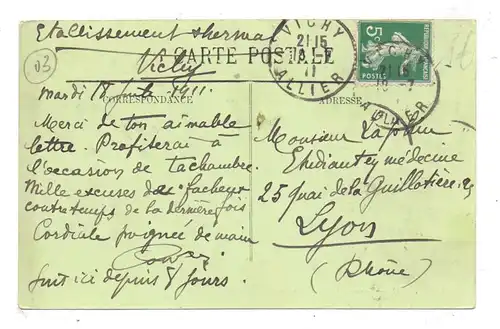 Etablissement thermal
Vichy
CARTE POSTALE
mardi 18 Juil. 1911.
CORRESPONDANCE
Merci de ton aimable
lettre. Profiterai à
l'occasion de ta chambre.
Mille excuses de fâcheux
contretemps de la dernière fois
Cordiale poignée de main
suis ici depuis 8 jours.
ADRESSE
Monsieur
Etudiant en médecine
25 quai de la Guillotière, 25
Lyon
(Rhône)
VICHY
21 15
18 -7
11
ALLIER
5c
REPUBLIQUE FRANÇAISE
POSTES
03